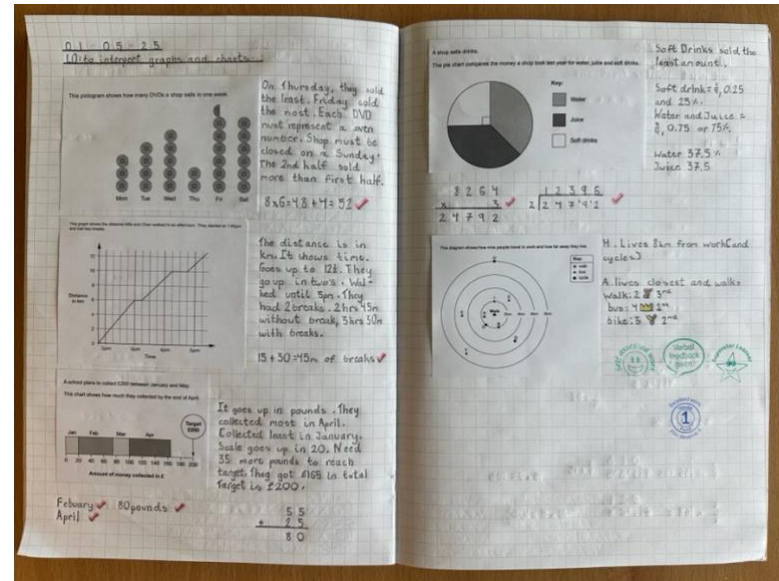 01 - 05 - 25
LO: to interpret graphs and charts.
This pictogram shows how many DVDs a shop sells in one week.
Mon Tue Wed Thu Fri Sat
On Thursday, they sold
the least. Friday sold
the most. Each DVD
must represent a even
number. Shop must be
closed on a Sunday.
The 2nd half sold
more than first half.
8x6=48+4=52
Distance
in km
Time
The distance is in
km. It shows time.
Goes up to 12½. They
go up in two's. Wal-
ked until 5pm. They
had 2 breaks. 2hrs 45m
without break, 3hrs 30m
with breaks.
15+30=45m of breaks
A school plans to collect £200 between January and May.
This chart shows how much they collected by the end of April.
Target
£200
Jan Feb Mar Apr
0 20 40 60 80 100 120 140 160 180 200
Amount of money collected in £
It goes up in pounds. They
collected most in April.
Collected least in January.
Scale goes up in 20. Need
35 more pounds to reach
target. They got £165 in total
Target is £200.
Febuary 80pounds
April
55
+ 25
80
A shop sells drinks.
The pie chart compares the money a shop took last year for water, juice and soft drinks.
Key:
Water
Juice
Soft drinks
Soft Drinks sold the
least amount.
Soft drink = ¼, 0.25
and 25%.
Water and Juice =
¾, 0.75 or 75%.
Water 37.5%
Juice 37.5
8264
x 3
24792
12396
2 24792
This diagram shows how nine people travel to work and how far away they live.
Key
walk
bus
cycle
H. Lives 8km from work(and
cycles)
A. lives closest and walks
Walk: 2 3rd
bus: 4 1st
bike: 3 2nd
Self assessed work
Verbal
feedback
given
1